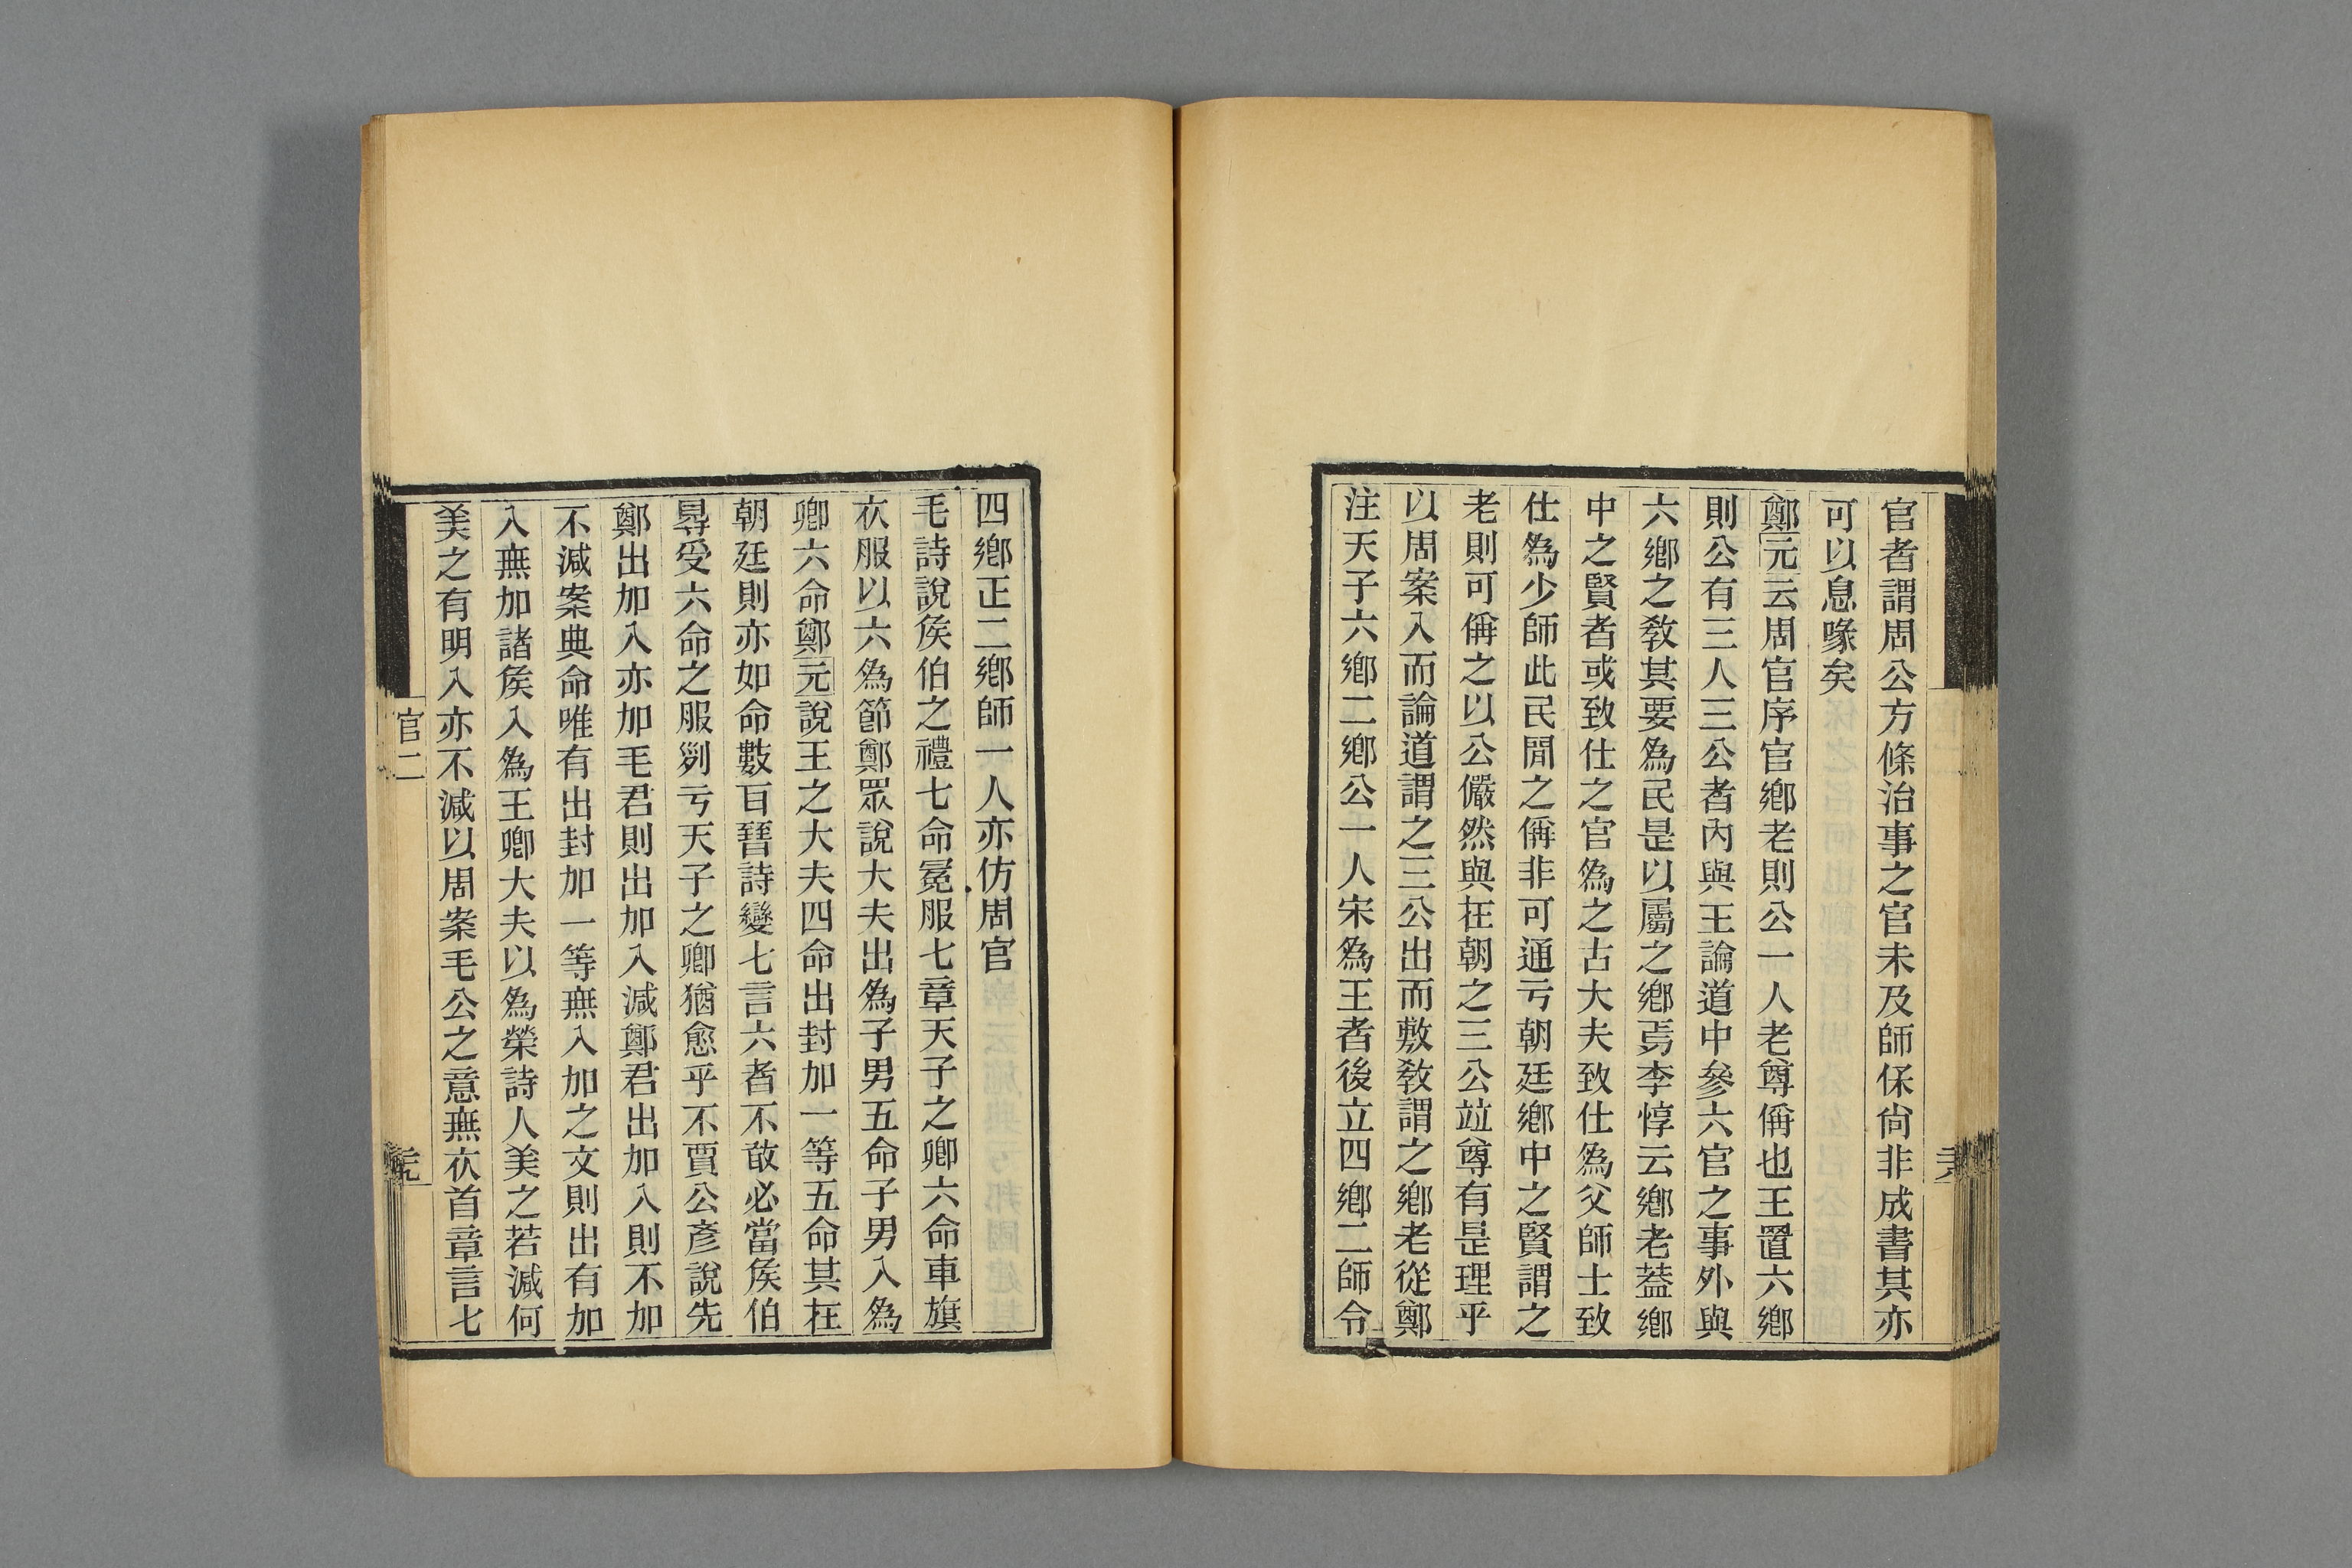 官者謂周公方條治事之官未及師保尙非成書其亦
可以息喙矣
鄭元云周官序官鄉老則公一人老尊偁也王置六鄉
則公有三人三公者內與王論道中參六官之事外與
六鄉之敎其要為民是以屬之鄉焉李惇云鄉老葢鄉
中之賢者或致仕之官為之古大夫致仕為父師士致
仕為少師此民閒之偁非可通亏朝廷鄉中之賢謂之
老則可偁之以公儼然與在朝之三公竝尊有是理乎
以周案入而論道謂之三公出而敷敎謂之鄉老從鄭
注天子六鄉二鄉公一人宋為王者後立四鄉二師令
四鄉正二鄉師一人亦仿周官
毛詩說矦伯之禮七命冕服七章天子之卿六命車旗
衣服以六為節鄭眾說大夫出為子男五命子男入為
卿六命鄭元說王之大夫四命出封加一等五命其在
朝廷則亦如命數百晉詩變七言六者不敢必當矦伯
㝵受六命之服列亏天子之卿猶愈乎不賈公彥說先
鄭出加入亦加毛君則出加入減鄭君出加入則不加
不減案典命唯有出封加一等無入加之文則出有加
入無加諸矦入為王卿大夫以為榮詩人美之若減何
美之有明入亦不減以周案毛公之意無衣首章言七
官二